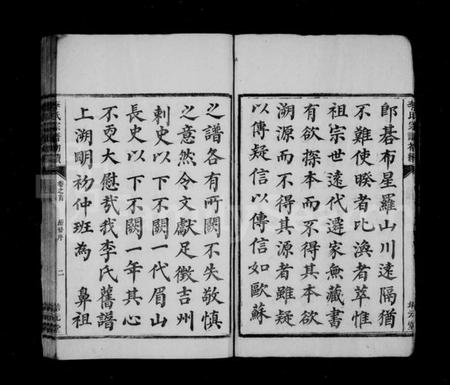 郎碁布星羅山川遠隔猶
不難使暌者比渙者萃惟
祖宗世遠代遷家無藏書
有欲探本而不得其本欲
溯源而不得其源者雖疑
以傳疑信以傳信如歐蘇
之譜各有所闕不失敬慎
之意然令文獻足徵吉州
刺史以下不闕一代眉山
長史以下不闕一年其心
不更大慰哉我李氏舊譜
上溯明初仲班為鼻祖
李氏宗譜
卷之首
二